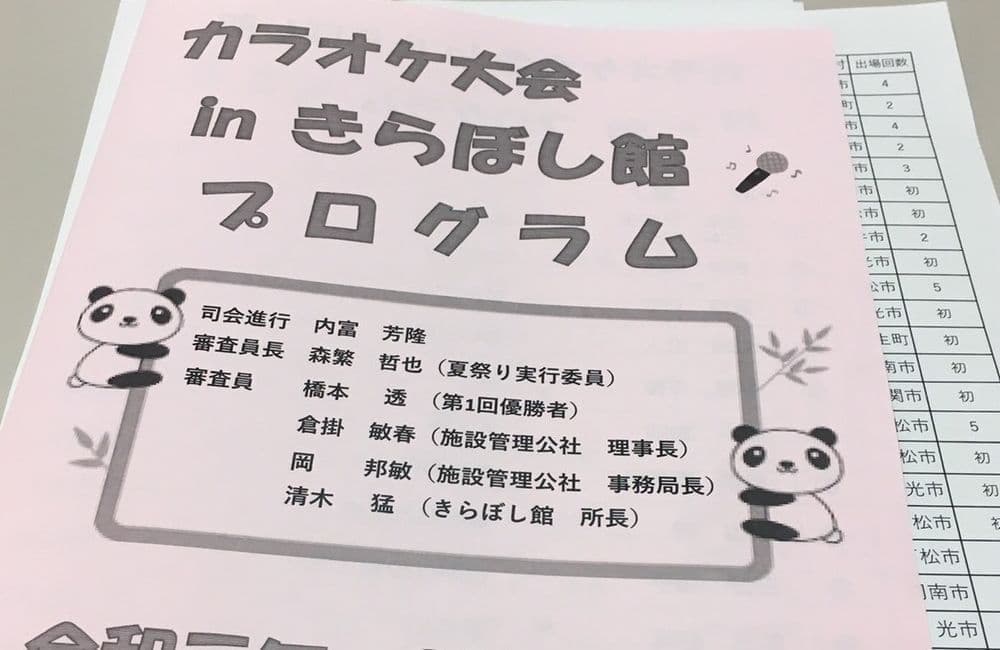 カラオケ大会
in きらぼし館
プログラム
司会進行 内富 芳隆
審査員長 森繁 哲也（夏祭り実行委員）
審査員 橋本 透（第1回優勝者）
倉掛 敏春（施設管理公社 理事長）
岡 邦敏（施設管理公社 事務局長）
清木 猛（きらぼし館 所長）
令和元年
出場回数
市 4
町 2
市 4
市 2
市 3
市 初
市 初
市 2
光市 初
松市 5
光市 初
町 初
南市 初
関市 初
松市 5
松市 初
光市 初
松市 初
松市
南市
光市